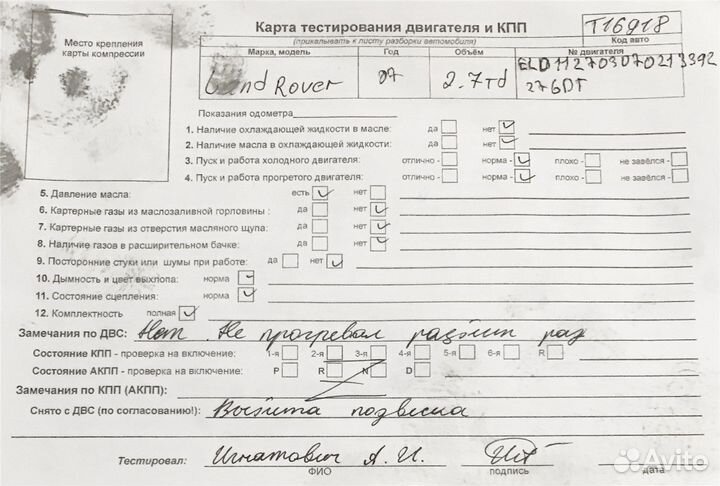 Место крепления
карты компрессии
Карта тестирования двигателя и КПП
(прикалывать к листу разборки автомобиля)
T16918
Код авто
Марка, модель Год Объём № двигателя
Land Rover 07 2.7td ELD112703070213392
276DT
Показания одометра
1. Наличие охлаждающей жидкости в масле: да нет
2. Наличие масла в охлаждающей жидкости: да нет
3. Пуск и работа холодного двигателя: отлично - норма - плохо - не завёлся -
4. Пуск и работа прогретого двигателя: отлично - норма - плохо - не завёлся -
5. Давление масла: есть нет
6. Картерные газы из маслозаливной горловины : да нет
7. Картерные газы из отверстия масляного щупа: да нет
8. Наличие газов в расширительном бачке: да нет
9. Посторонние стуки или шумы при работе: да нет
10. Дымность и цвет выхлопа: норма
11. Состояние сцепления: норма
12. Комплектность полная
Замечания по ДВС: Нет. Не прогревал разбит рад
Состояние КПП - проверка на включение: 1-я 2-я 3-я 4-я 5-я 6-я R
Состояние АКПП - проверка на включение: P R N D
Замечания по КПП (АКПП):
Снято с ДВС (по согласованию!): Выбита подвеска
Тестировал: Игнатович А. И.
ФИО подпись дата
Avito